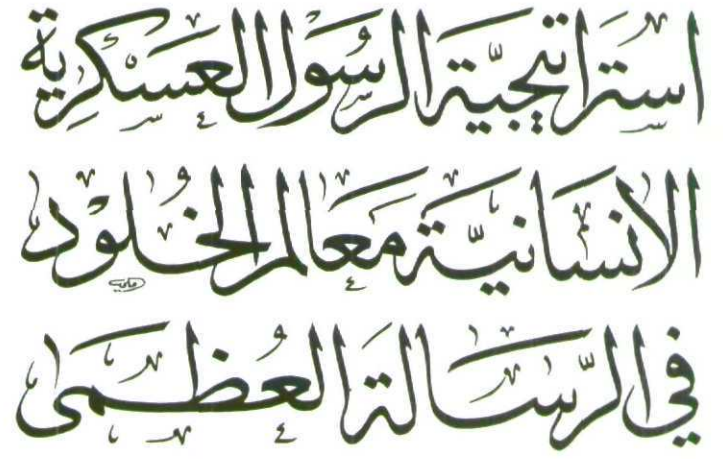 استراتيجية الرسول العسكرية
الانسانية معالم الخلود
في الرسالة العظمى